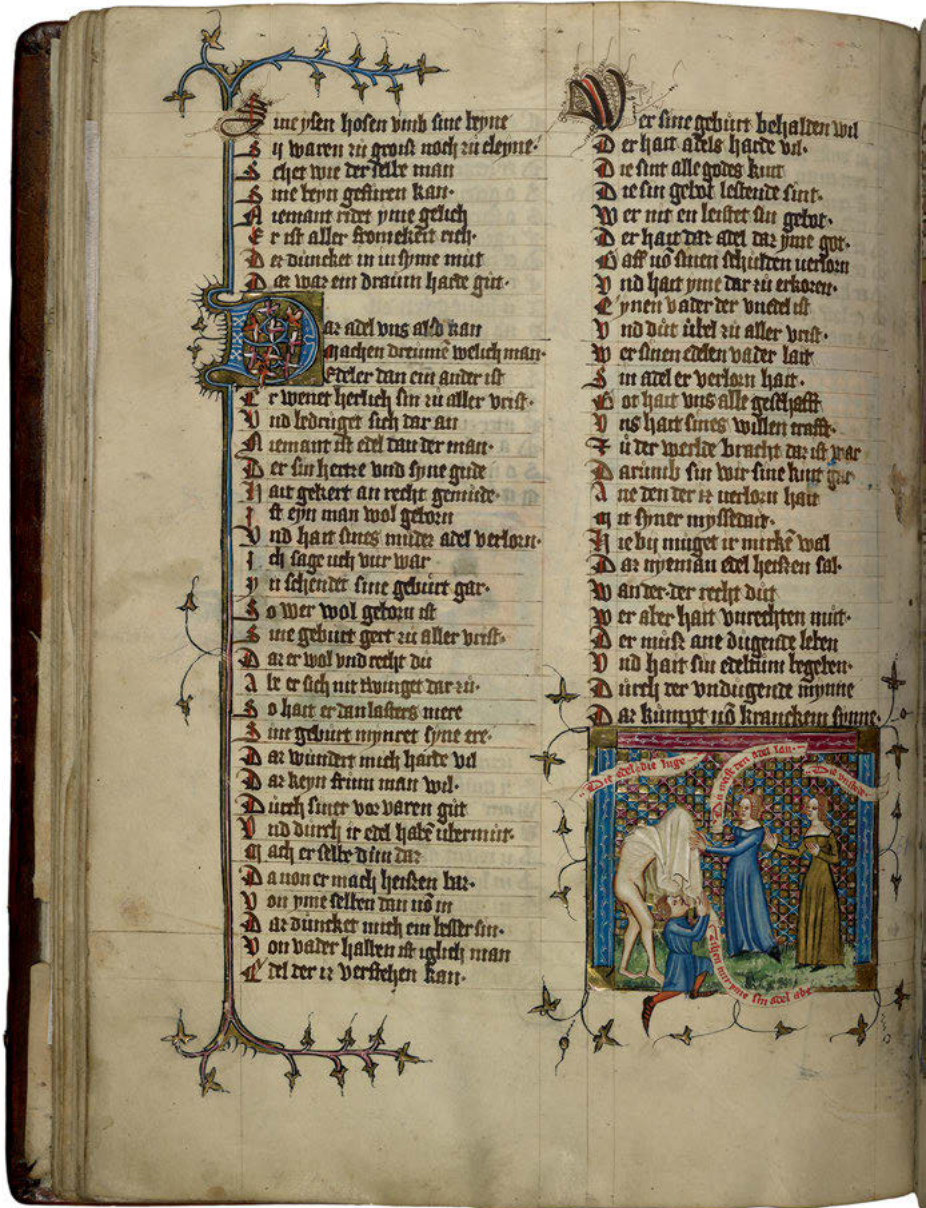 S ine ysen hosen vmb sine beyne
S ij waren zu groiß noch zu cleyne·
S ehet wie der selbe man
S ine beyn gefuren kan·
N iemant ridet yme gelich
E r ist aller fromekeit rich·
D er duncket in in syme mut
D az waz ein draum harde gut·
D az adel vns also kan
machen dreumē welich man·
Edeler dan ein ander ist
E r wenet herlich sin zu aller vrist·
V nd bedruget sich dar an
N iemant ist edel dan der man·
D er sin hertze vnd syne gude
H ait gekert an recht gemude·
I st eyn man wol geborn
V nd hait sines mudes adel verlorn·
I ch sage uch vur war
y n schendet sine geburt gar·
S o wer wol geborn ist
S ine geburt gert zu aller vrist·
D az er wol vnd recht du
A be er sich nit twinget dar zu·
S o hait er dan lasters mere
S ine geburt mynret syne ere·
D az wundert mich harde vil
D az keyn frum man wil·
D urch siner vor varen gut
V nd durch ir edel habē ubermut·
M ach er selbe dun daz
D a von er mach heißen baz·
V on yme selben dan vō in
D az duncket mich ein besser sin·
V on vader halben ist iglich man
E del der iz verstehen kan·
W er sine geburt behalden wil
D er hait adels harde vil·
D ie sint alle godes kint
D ie sin gebot leistende sint·
W er nit en leistet sin gebot·
D er hait daz adel daz yme got·
G aff vō sinen schulden verlorn
V nd hait yme dar zu erkoren·
E ynen vader der vnedel ist
V nd dut übel zu aller vrist·
W er sinen edelen vader lait
S in adel er verlorn hait·
G ot hait vns alle geschafft
V ns hait sines willen crafft·
Z u der werlde bracht daz ist war
D arumb sin wir sine kint gar
A ne den der iz verlorn hait
M it syner myssedait·
H ie bij muget ir mirkē wal
D az nyeman edel heißen sal·
W an der·der recht dut
W er aber hait vnrechten mut·
D er muß ane dugende leben
V nd hait sin edeltum begeben·
D urch der vndugende mynne
D az kumpt vō kranckem synne·
Die edel·die luge
Du must den adel lan·
zihen mir yme sin adel abe